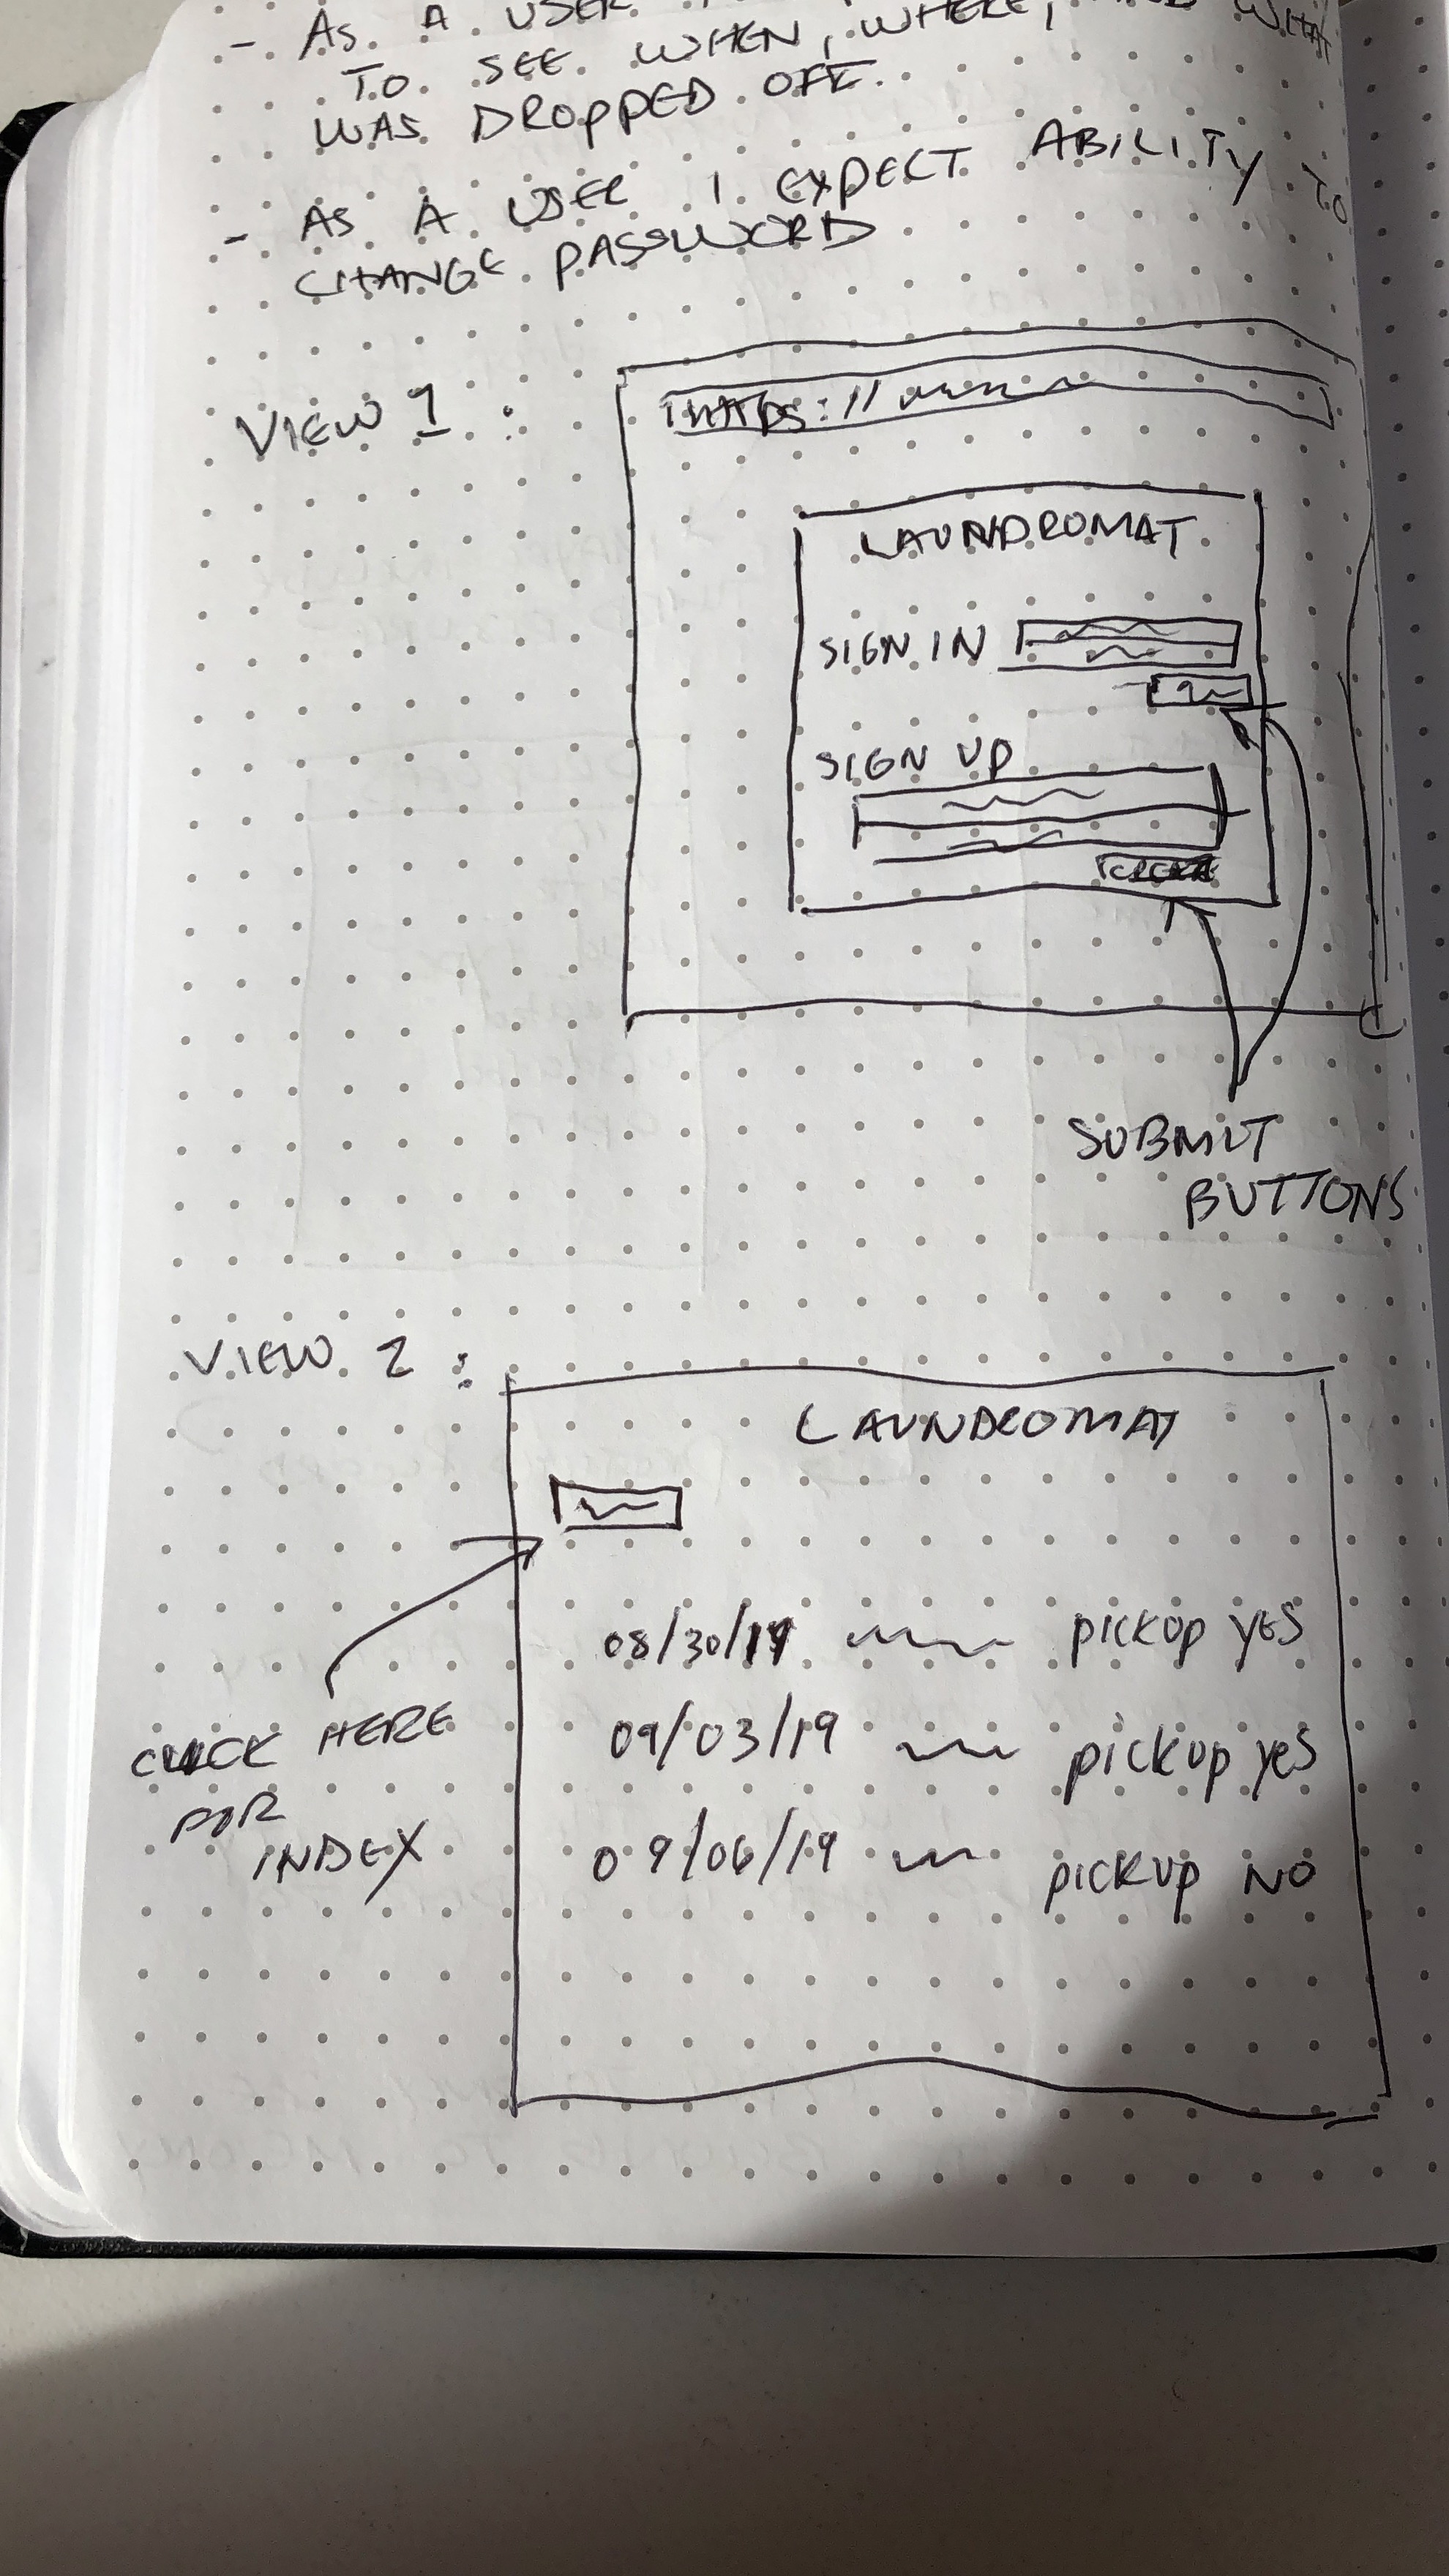 - AS A USER
TO SEE WHEN, WHERE, WHAT
WAS DROPPED OFF.
- AS A USER I EXPECT ABILITY TO
CHANGE PASSWORD
VIEW 1 :
LAUNDROMAT
SIGN IN
SIGN UP
SUBMIT
BUTTONS
VIEW 2 :
LAUNDROMAT
08/30/19 pickup YES
09/03/19 pickup yes
09/06/19 pickup NO
CLICK HERE
FOR
INDEX